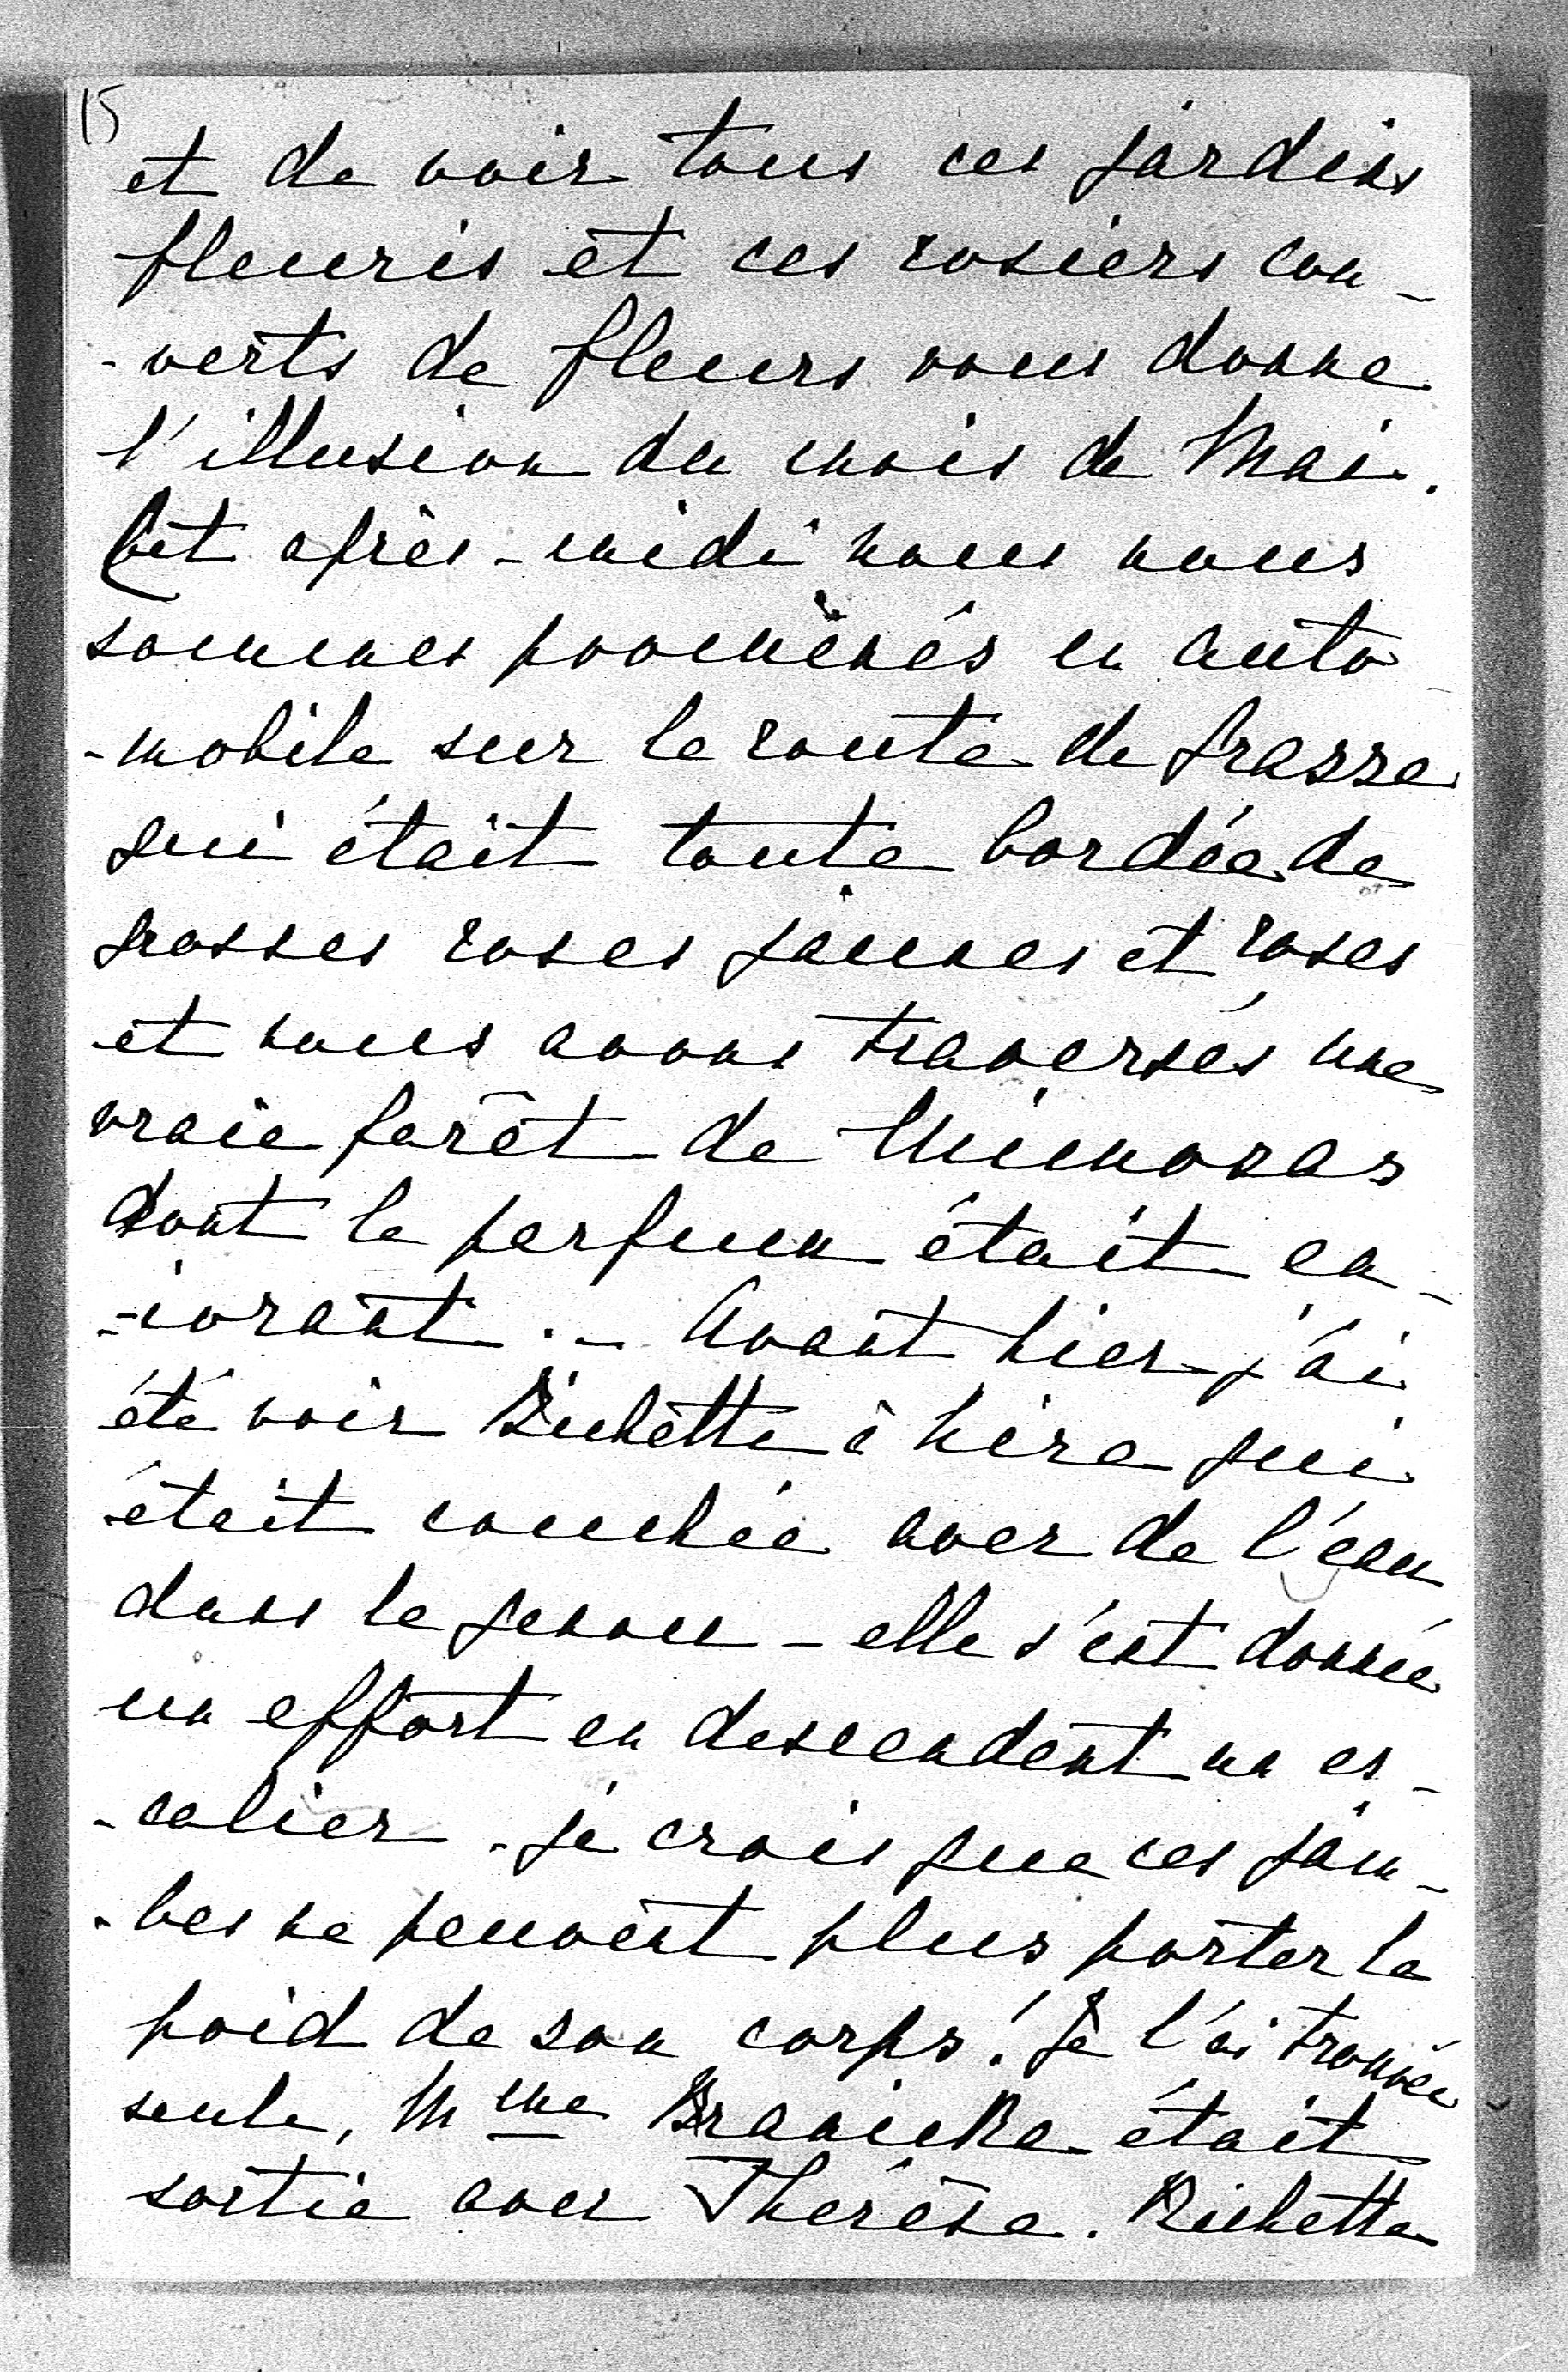 15
et de voir tous ces jardins
fleuris et ces rosiers cou-
-verts de fleurs vous donne
l'illusion du mois de Mai.
Cet après-midi nous nous
sommes promènés en auto-
-mobile sur la route de Grasse
qui était toute bordée de
grosses roses jaunes et roses
et nous avons traversés une
vraie forêt de Mimosas
dont le parfum était en-
-ivrant. - Avant hier j'ai
été voir Bichette à Nice qui
était couchée avec de l'eau
dans le genou - elle s'est donnée
un effort en descendant un es-
-calier. je crois que ces jam-
-bes ne peuvent plus porter le
poid de son corps! Je l'ai trouvée
seule, Mme Branicka était
sortie avec Thérèse. Bichette